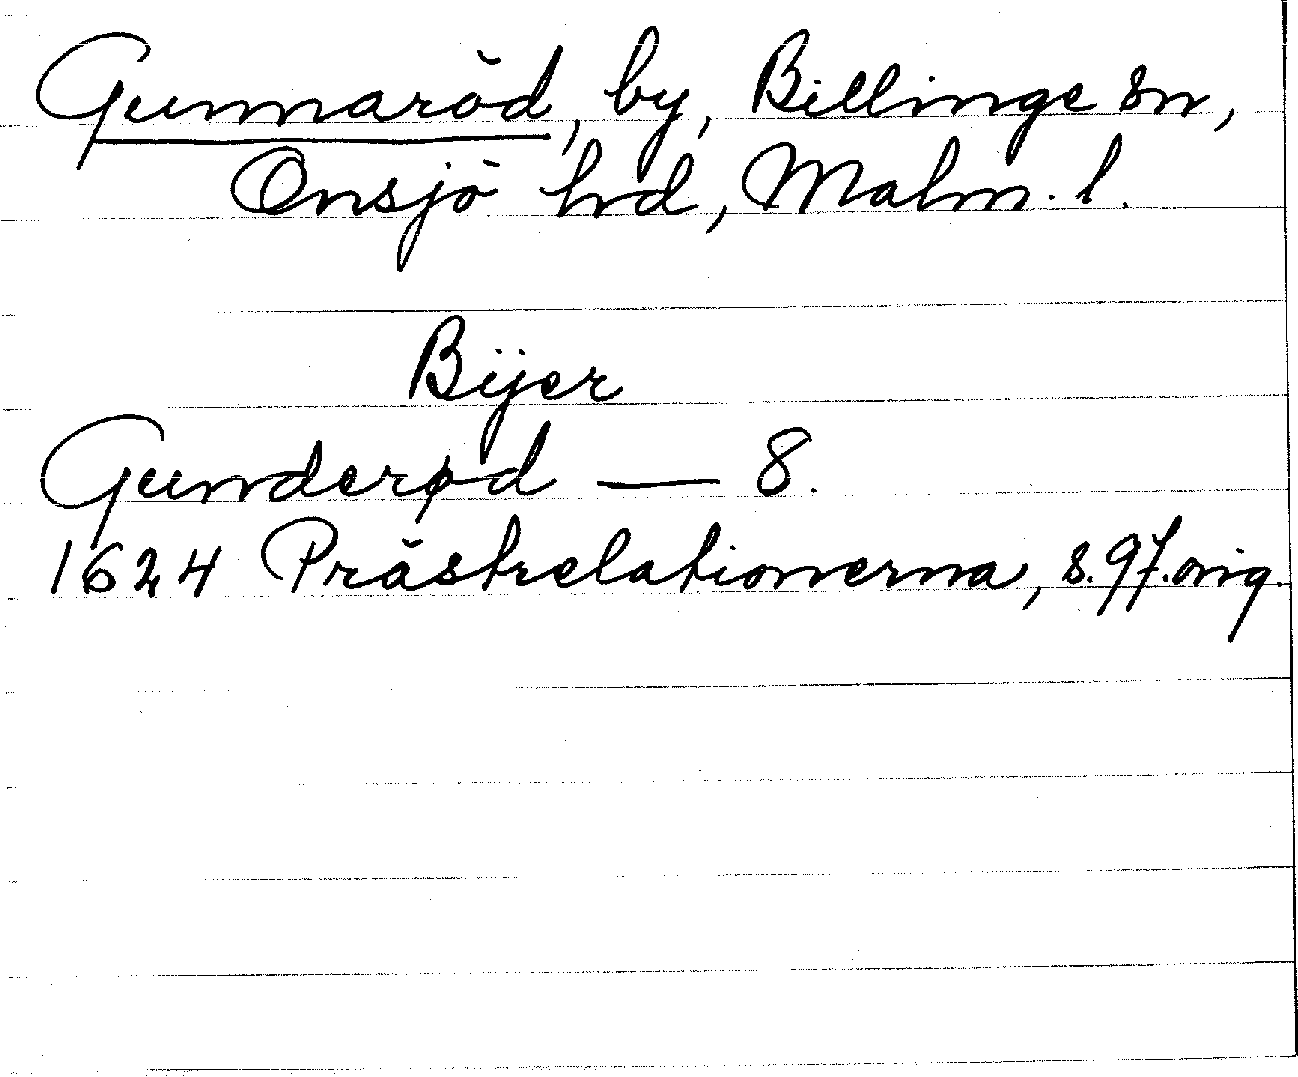 Gunnaröd, by, Billinge sn,
Onsjö hrd, Malm. l.
Bÿer
Gunderød — 8.
1624 Prästrelationerna, s. 97. orig.